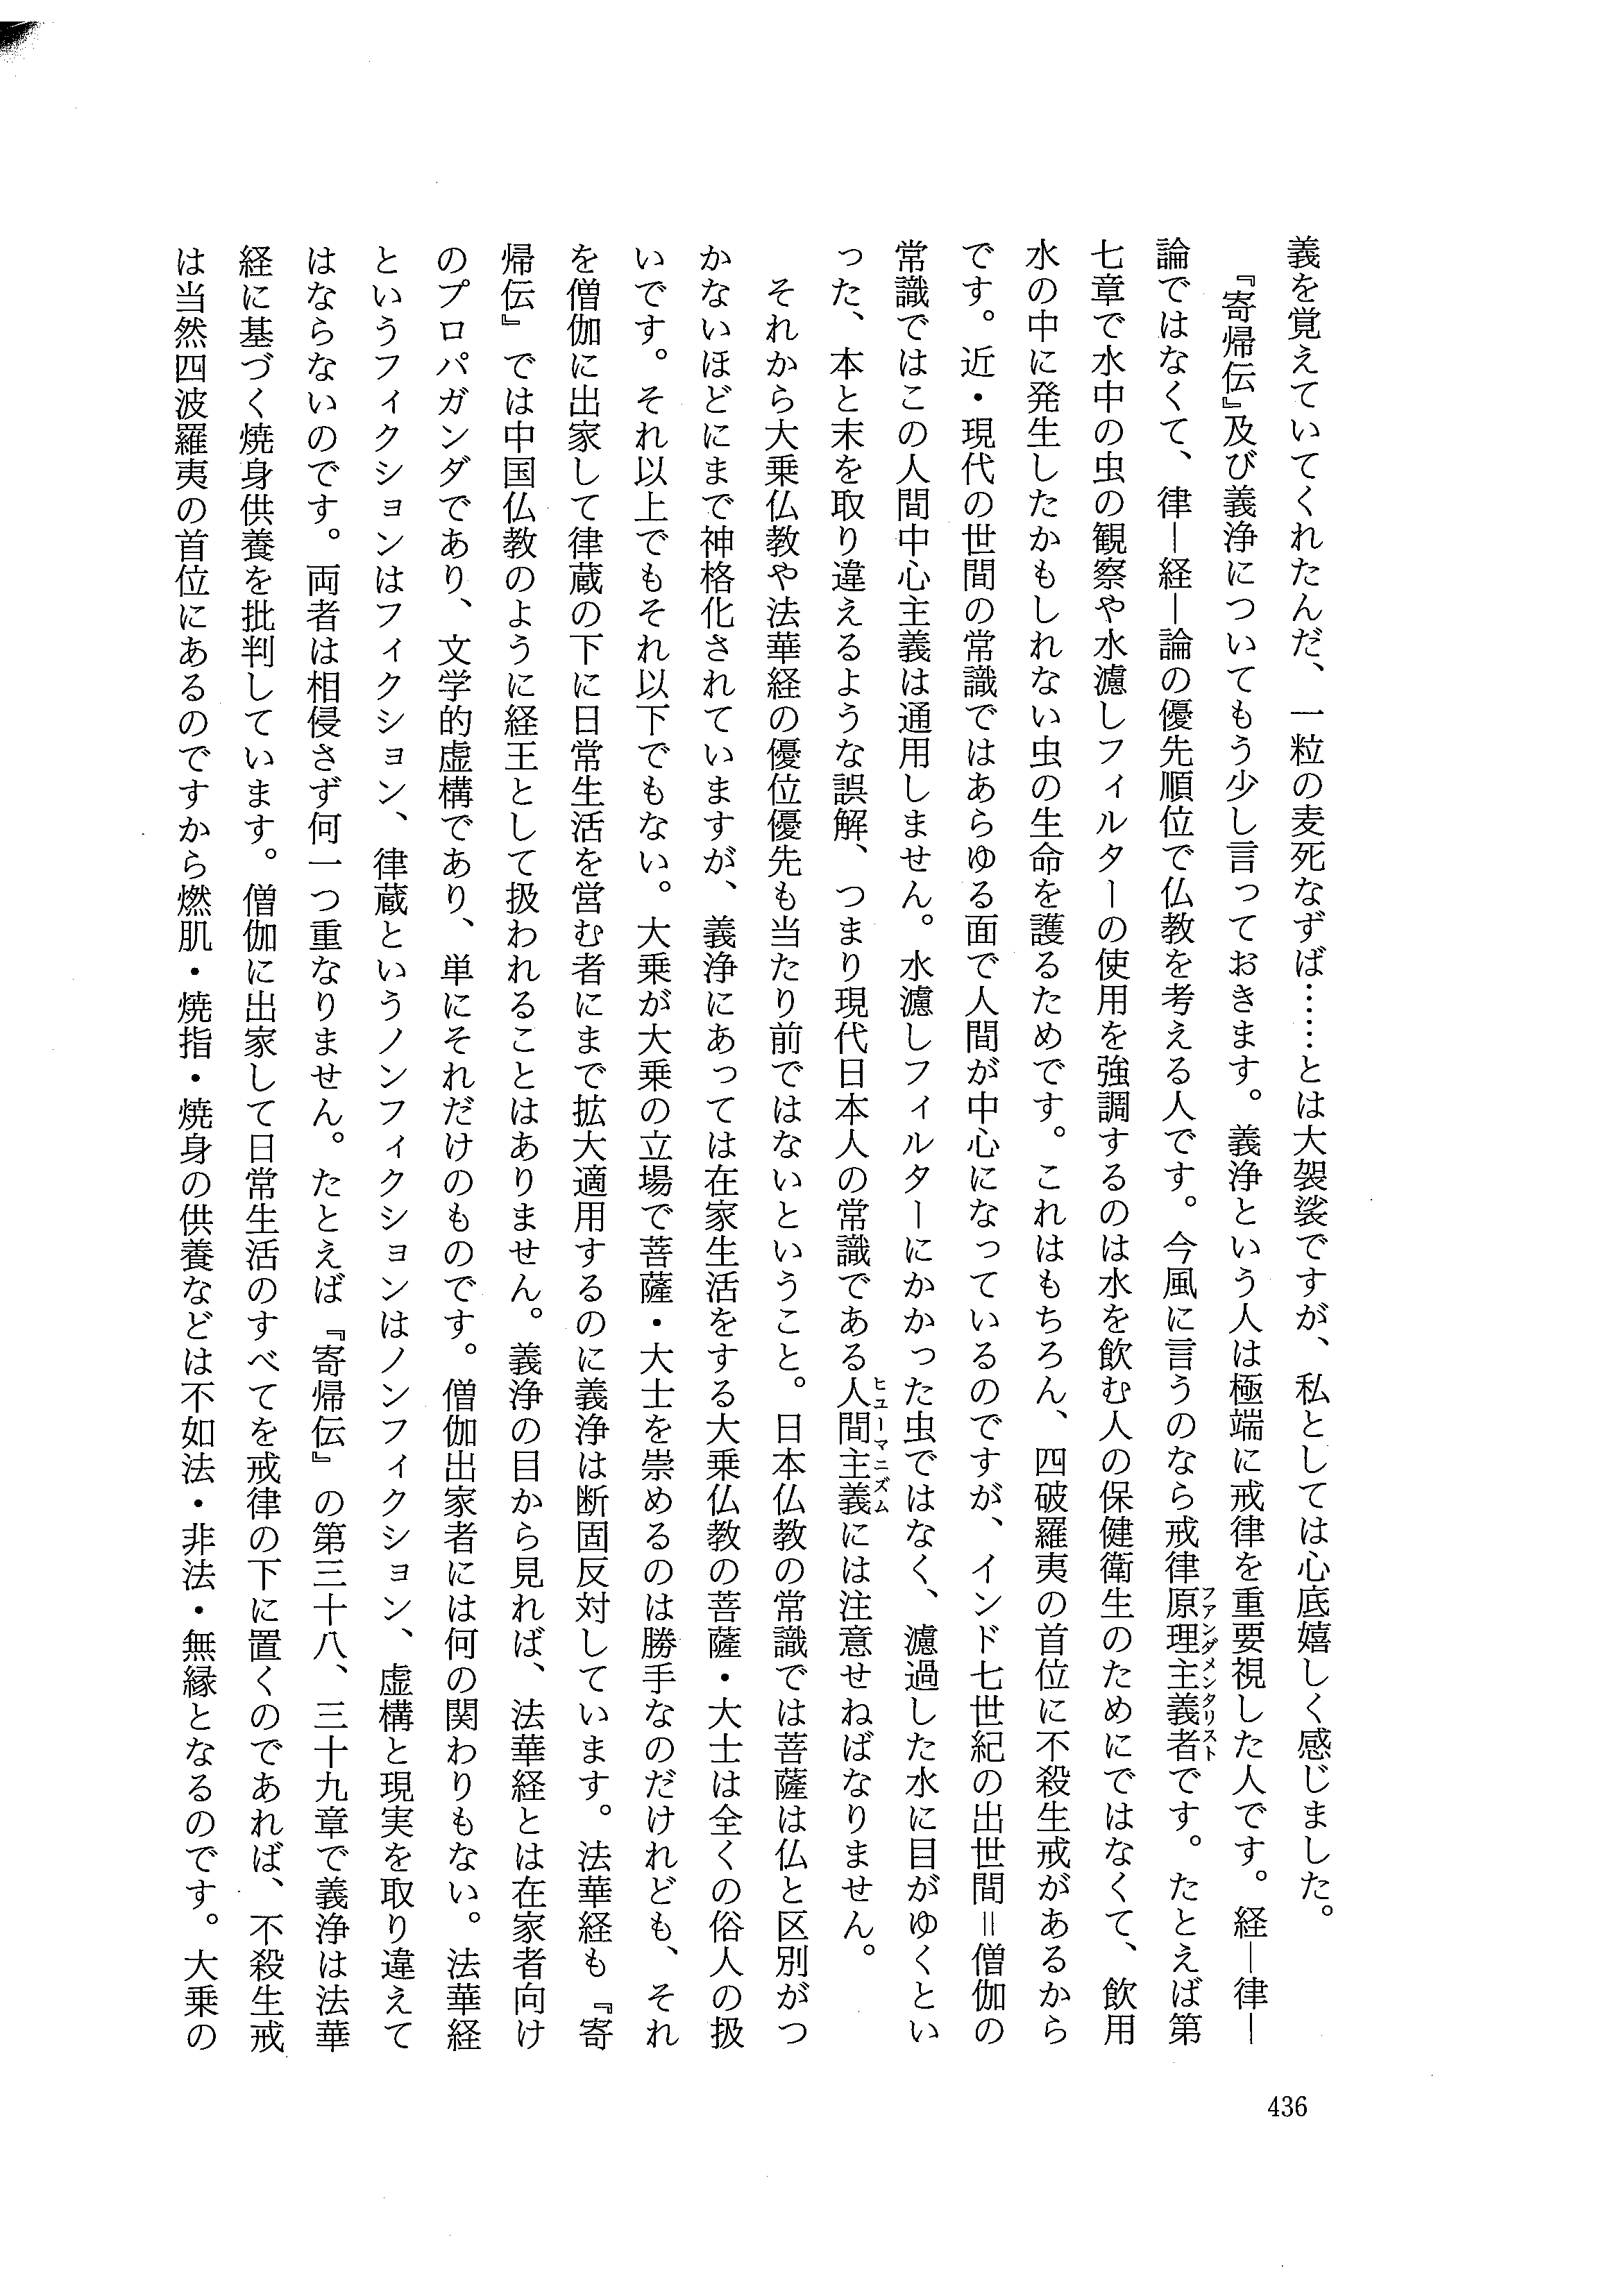 義を覚えていてくれたんだ、一粒の麦死なずば……とは大袈裟ですが、私としては心底嬉しく感じました。
『寄帰伝』及び義浄についてもう少し言っておきます。義浄という人は極端に戒律を重要視した人です。経―律―
論ではなくて、律―経―論の優先順位で仏教を考える人です。今風に言うのなら戒律原理主義者です。たとえば第
ファンダメンタリスト
七章で水中の虫の観察や水濾しフィルターの使用を強調するのは水を飲む人の保健衛生のためにではなくて、飲用
水の中に発生したかもしれない虫の生命を護るためです。これはもちろん、四破羅夷の首位に不殺生戒があるから
です。近・現代の世間の常識ではあらゆる面で人間が中心になっているのですが、インド七世紀の出世間＝僧伽の
常識ではこの人間中心主義は通用しません。水濾しフィルターにかかった虫ではなく、濾過した水に目がゆくとい
った、本と末を取り違えるような誤解、つまり現代日本人の常識である人間主義には注意せねばなりません。
ヒューマニズム
それから大乗仏教や法華経の優位優先も当たり前ではないということ。日本仏教の常識では菩薩は仏と区別がつ
かないほどにまで神格化されていますが、義浄にあっては在家生活をする大乗仏教の菩薩・大士は全くの俗人の扱
いです。それ以上でもそれ以下でもない。大乗が大乗の立場で菩薩・大士を崇めるのは勝手なのだけれども、それ
を僧伽に出家して律蔵の下に日常生活を営む者にまで拡大適用するのに義浄は断固反対しています。法華経も『寄
帰伝』では中国仏教のように経王として扱われることはありません。義浄の目から見れば、法華経とは在家者向け
のプロパガンダであり、文学的虚構であり、単にそれだけのものです。僧伽出家者には何の関わりもない。法華経
というフィクションはフィクション、律蔵というノンフィクションはノンフィクション、虚構と現実を取り違えて
はならないのです。両者は相侵さず何一つ重なりません。たとえば『寄帰伝』の第三十八、三十九章で義浄は法華
経に基づく焼身供養を批判しています。僧伽に出家して日常生活のすべてを戒律の下に置くのであれば、不殺生戒
は当然四波羅夷の首位にあるのですから燃肌・焼指・焼身の供養などは不如法・非法・無縁となるのです。大乗の
436